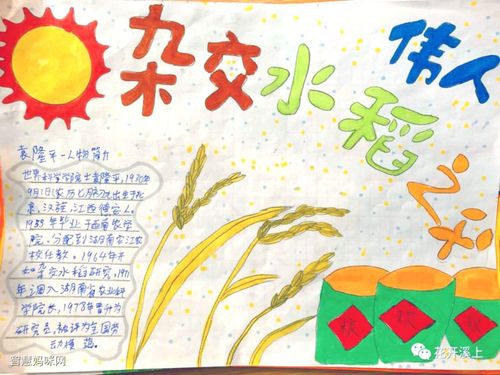 杂交水稻之父
伟人
袁隆平-人物简介
世界科学院院士袁隆平,1930年
9月1日(农历七月初九)出生于北
京,汉族,江西德安人。
1953年毕业于西南农学
院。分配到湖南省江农
校任教。1964年开
始杂交水稻研究。1971
年调入湖南省农业科
学院长,1978年晋升为
研究员,被评为全国劳
动模范。
智慧妈咪网
花开溪上